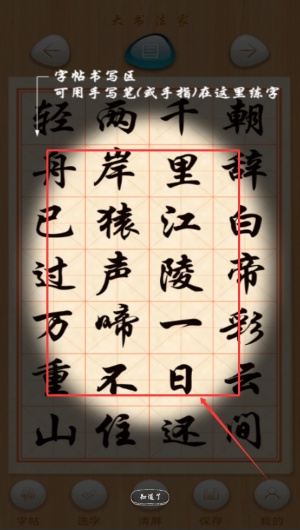 大书法家
字帖书写区
可用手写笔(或手指)在这里练字
朝辞白帝彩云间
千里江陵一日还
两岸猿声啼不住
轻舟已过万重山
字帖
选字
清屏
保存
我的
知道了